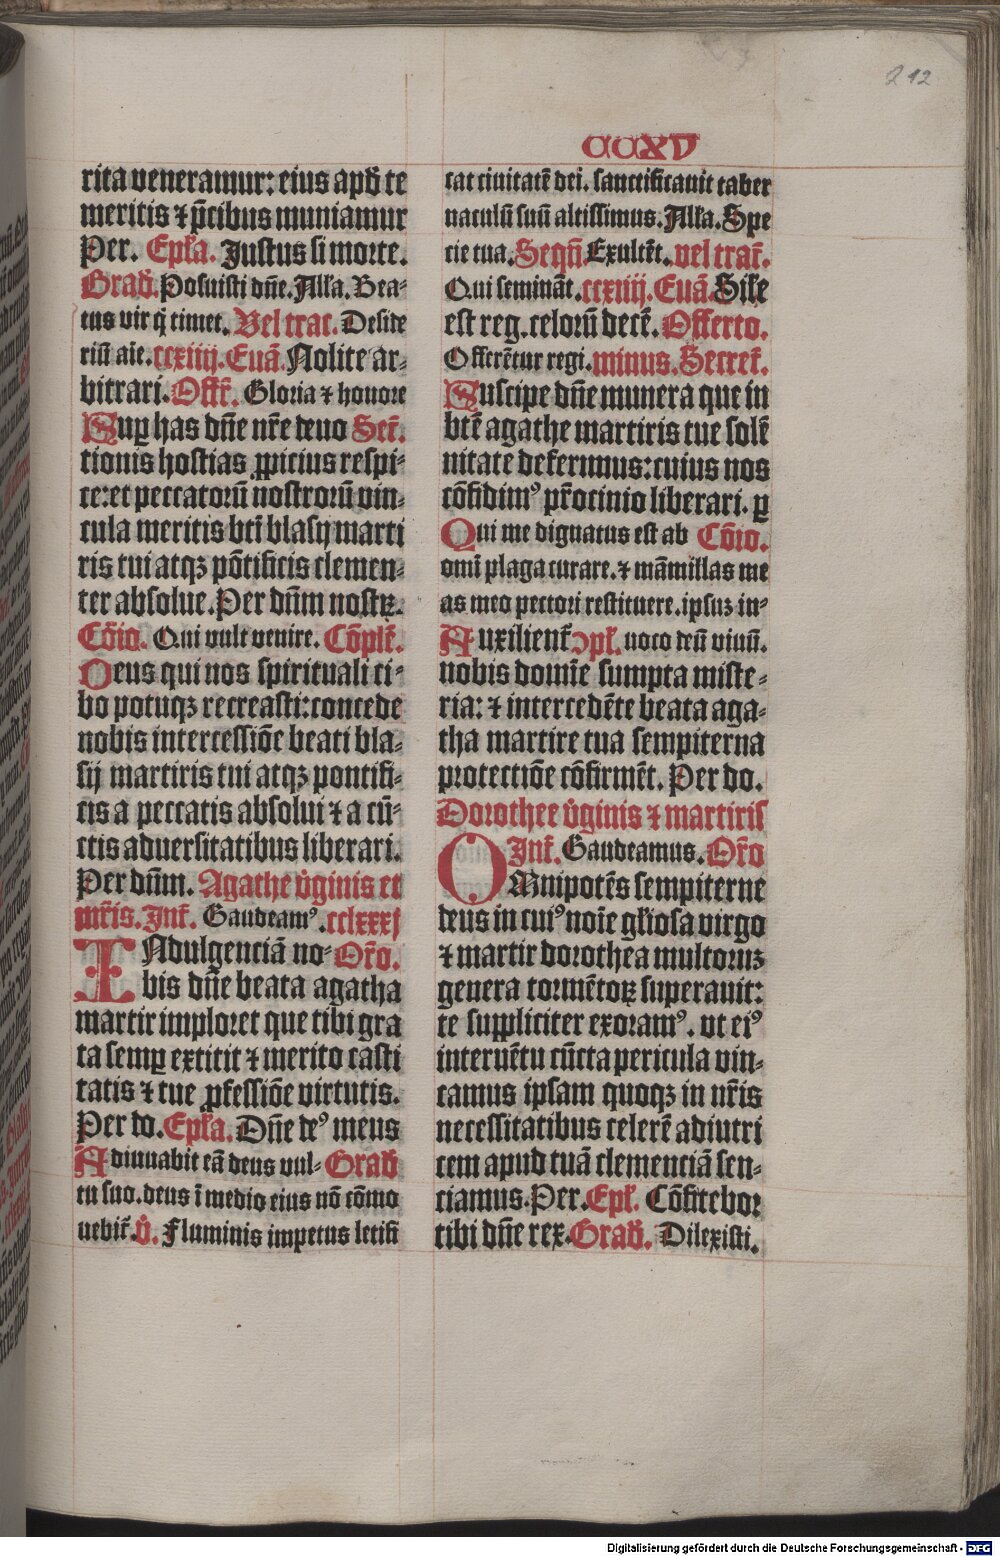 212
CCXV
rita veneramur: eius apđ te
meritis ⁊ p̄cibus muniamur
Per. Epl̄a. Justus si morte.
Grad̄. Posuisti dn̄e. All̄a. Bea-
tus vir q̄ timet. Vel trac. Deside
riū aīe. ccxiiij. Euā. Nolite ar-
bitrari. Off̄r. Gloria ⁊ honore
Sup̱ has dn̄e nr̄e deuo Secr̄.
tionis hostias ꝓpicius respi-
ce: et peccatorū nostrorū vin-
cula meritis bt̄i blasij marti
ris tui atqꝫ pōtificis clemen-
ter absolue. Per dn̄m nostrꝝ.
Cōio. Qui vult venire. Cōplēt.
Deus qui nos spirituali ci-
bo potuqꝫ recreasti: concede
nobis intercessiōe beati bla-
sij martiris tui atqꝫ pontifi-
cis a peccatis absolui ⁊ a cū-
ctis aduersitatibus liberari.
Per dn̄m. Agathe v̄ginis et
mr̄is. Int̄. Gaudeamꝰ. cclxxxj
INdulgenciā no- Or̄o.
bis dn̄e beata agatha
martir imploret que tibi gra
ta semp̱ extitit ⁊ merito casti
tatis ⁊ tue ꝓfessiōe virtutis.
Per do. Epl̄a. Dn̄e deꝰ meus
Adiuuabit eā deus vul- Grad̄
tu suo. deus ī medio eius nō cōmo
uebit̄. v̄. Fluminis impetus letifi
cat ciuitatē dei. sanctificauit taber
naculū suū altissimus. All̄a. Spe
cie tua. Seqn̄ Exultēt. vel trac̄.
Qui semināt. ccxiiij. Euā. Sile
est reg. celorū decē. Offerto.
Offerētur regi. minus. Secret̄.
Suscipe dn̄e munera que in
bt̄ē agathe martiris tue solē
nitate deferimus: cuius nos
cōfidimꝰ pr̄ocinio liberari. p̱
Qui me dignatus est ab Cōio.
omī plaga curare. ⁊ māmillas me
as meo pectori restituere. ipsuꝫ in-
Auxilient̄ ↄpl̄. uoco deū viuū.
nobis domīe sumpta miste-
ria: ⁊ intercedēte beata aga-
tha martire tua sempiterna
protectiōe cōfirmēt. Per do.
Dorothee v̄ginis ⁊ martiris
Int̄. Gaudeamus. Or̄o
OMnipotēs sempiterne
deus in cuiꝰ noīe gl̄iosa virgo
⁊ martir dorothea multoruꝫ
genera tormētoꝝ superauit:
te suppliciter exoramꝰ. vt eiꝰ
interuētu cūcta pericula vin-
camus ipsam quoqꝫ in nr̄is
necessitatibus celerē adiutri
cem apud tuā clementiā sen-
ciamus. Per. Epl̄. Cōfitebor
tibi dn̄e rex. Grad̄. Dilexisti.
Digitalisierung gefördert durch die Deutsche Forschungsgemeinschaft - DFG